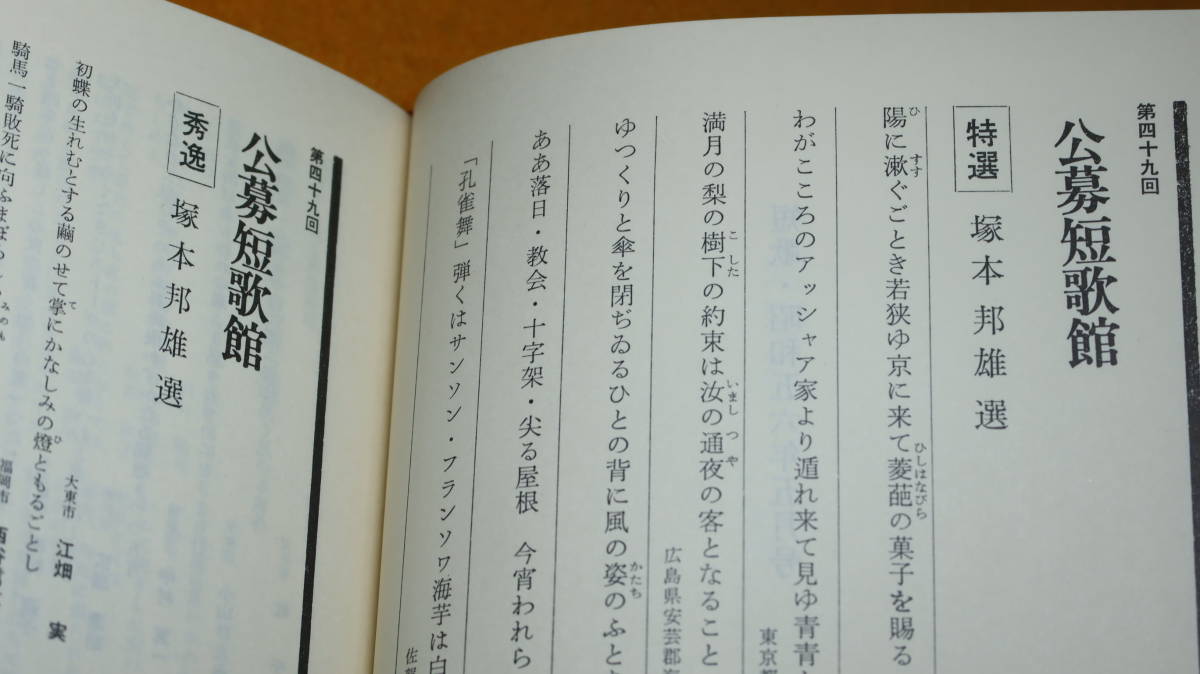 第四十九回
公募短歌館
特選 塚本邦雄選
陽に漱ぐごとき若狭ゆ京に来て菱葩の菓子を賜る
わがこころのアッシャア家より遁れ来て見ゆ青青
東京都
満月の梨の樹下の約束は汝の通夜の客となること
広島県安芸郡海
ゆつくりと傘を閉ぢゐるひとの背に風の姿のふと
ああ落日・教会・十字架・尖る屋根 今宵われら
「孔雀舞」弾くはサンソン・フランソワ海芋は白
佐賀
第四十九回
公募短歌館
秀逸 塚本邦雄選
初蝶の生れむとする繭のせて掌にかなしみの燈ともるごとし
大東市 江畑 実
騎馬一騎敗死に向ふまぼろし
福岡市